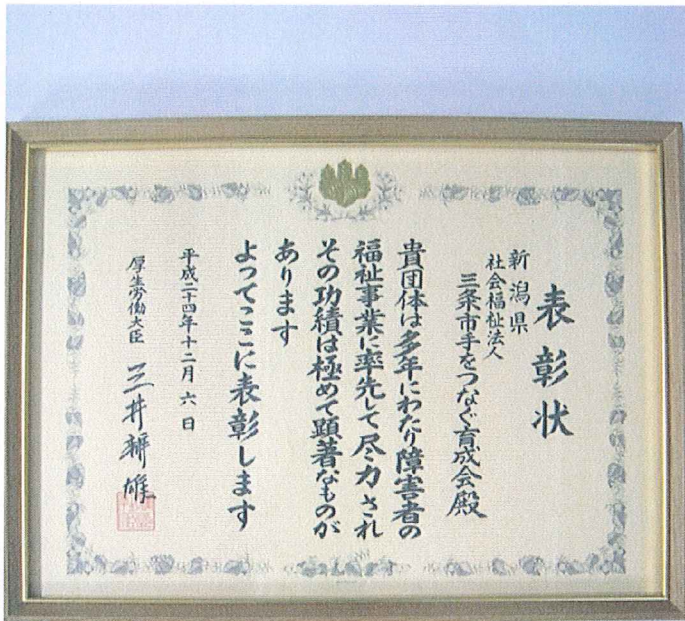 表彰状
新潟県
社会福祉法人
三条市手をつなぐ育成会殿
貴団体は多年にわたり障害者の
福祉事業に率先して尽力され
その功績は極めて顕著なものが
あります
よってここに表彰します
平成二十四年十二月六日
厚生労働大臣 三井辨雄